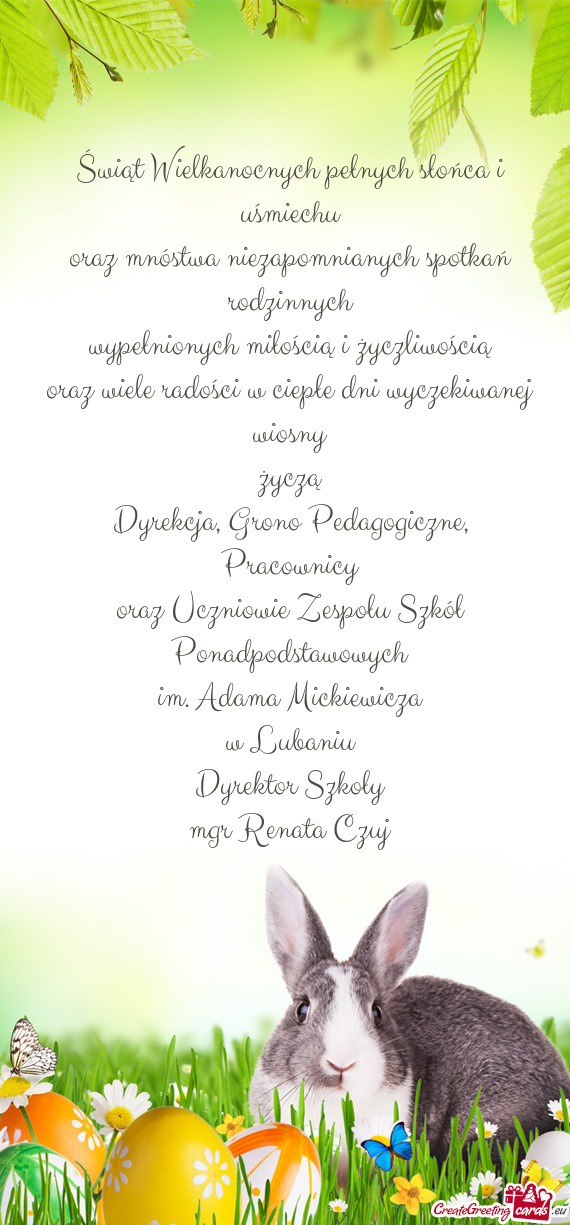 Świąt Wielkanocnych pełnych słońca i
uśmiechu
oraz mnóstwa niezapomnianych spotkań
rodzinnych
wypełnionych miłością i życzliwością
oraz wiele radości w ciepłe dni wyczekiwanej
wiosny
życzą
Dyrekcja, Grono Pedagogiczne,
Pracownicy
oraz Uczniowie Zespołu Szkół
Ponadpodstawowych
im. Adama Mickiewicza
w Lubaniu
Dyrektor Szkoły
mgr Renata Czuj
CreateGreetingcards.eu